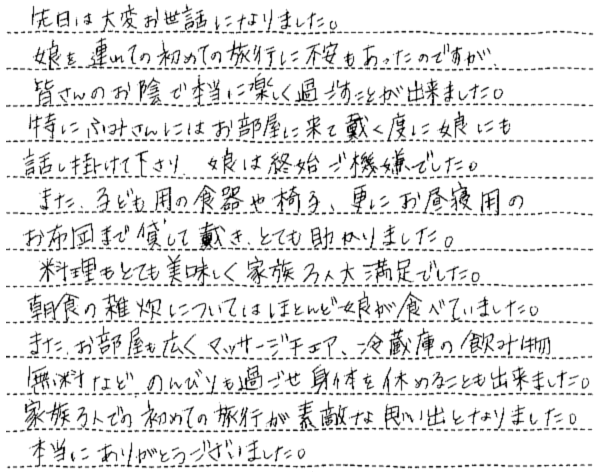 先日は大変お世話になりました。
娘を連れての初めての旅行に不安もあったのですが、
皆さんのお陰で本当に楽しく過ごすことが出来ました。
特にふみさんにはお部屋に来て戴く度に娘にも
話し掛けて下さり、娘は終始ご機嫌でした。
また、子ども用の食器や椅子、更にお昼寝用の
お布団まで貸して戴き、とても助かりました。
料理もとても美味しく家族3人大満足でした。
朝食の雑炊についてはほとんど娘が食べていました。
また、お部屋も広くマッサージチェア、冷蔵庫の飲み物
無料など、のんびりも過ごせ身体を休めることも出来ました。
家族3人での初めての旅行が素敵な思い出となりました。
本当にありがとうございました。